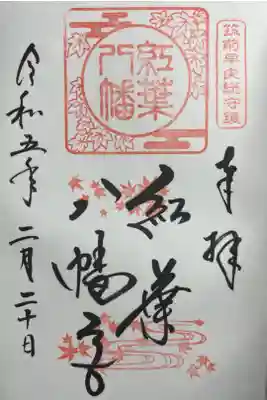 筑前早良総守護
奉拝
紅葉
八幡
紅葉
八幡宮
令和五年二月二十日